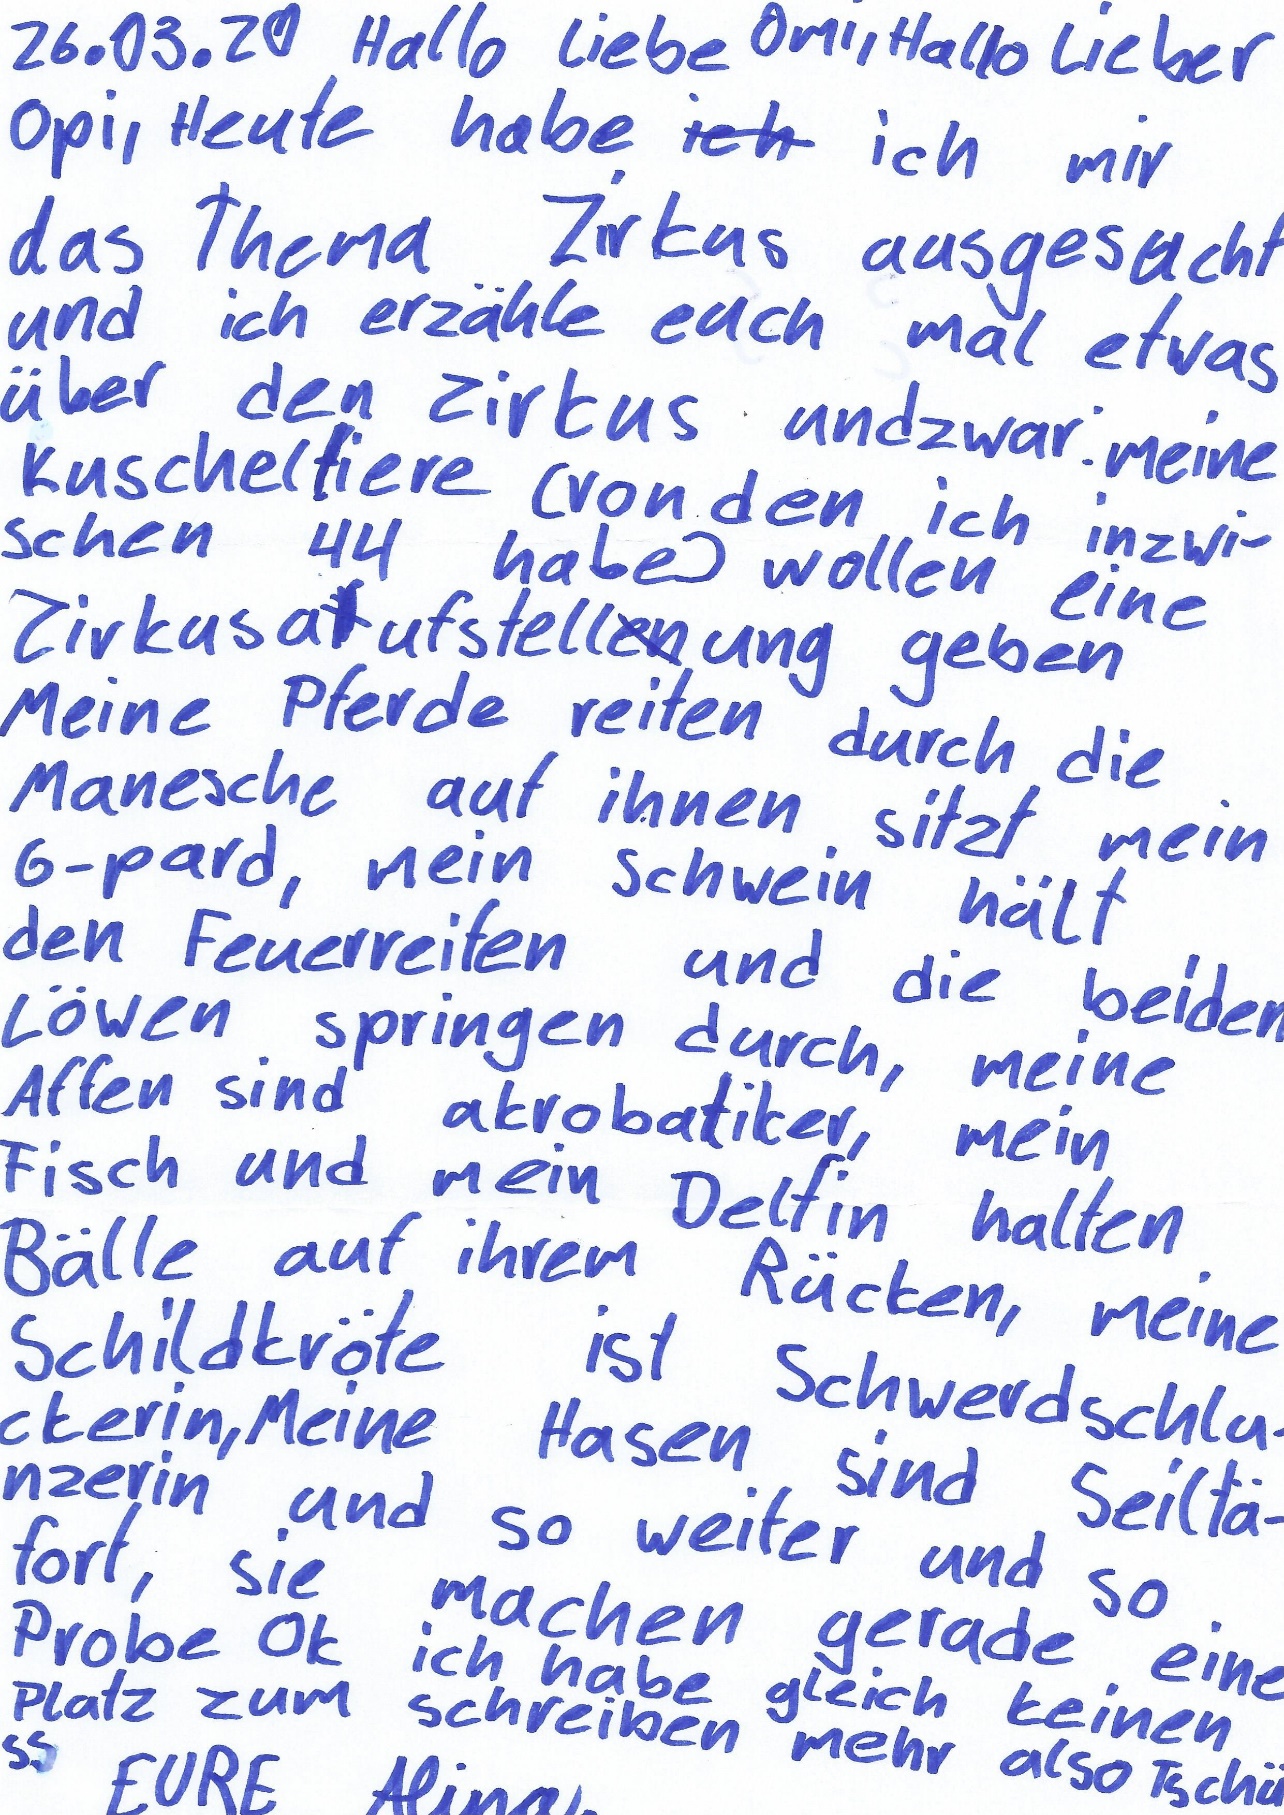 26.03.20 Hallo liebe Omi, Hallo Lieber
Opi, Heute habe ich ich mir
das Thema Zirkus ausgesucht
und ich erzähle euch mal etwas
über den Zirkus undzwar: meine
Kuscheltiere (von den ich inzwi-
schen 44 habe) wollen eine
Zirkusaufstellenung geben
Meine Pferde reiten durch die
Manesche auf ihnen sitzt mein
G-pard, mein Schwein hält
den Feuerreifen und die beiden
Löwen springen durch, meine
Affen sind akrobatiker, mein
Fisch und mein Delfin halten
Bälle auf ihrem Rücken, meine
Schildkröte ist Schwerdschlu-
ckerin, Meine Hasen sind Seiltä-
nzerin und so weiter und so
fort, sie machen gerade eine
Probe Ok ich habe gleich keinen
Platz zum schreiben mehr also Tschü
ss
EURE Alina